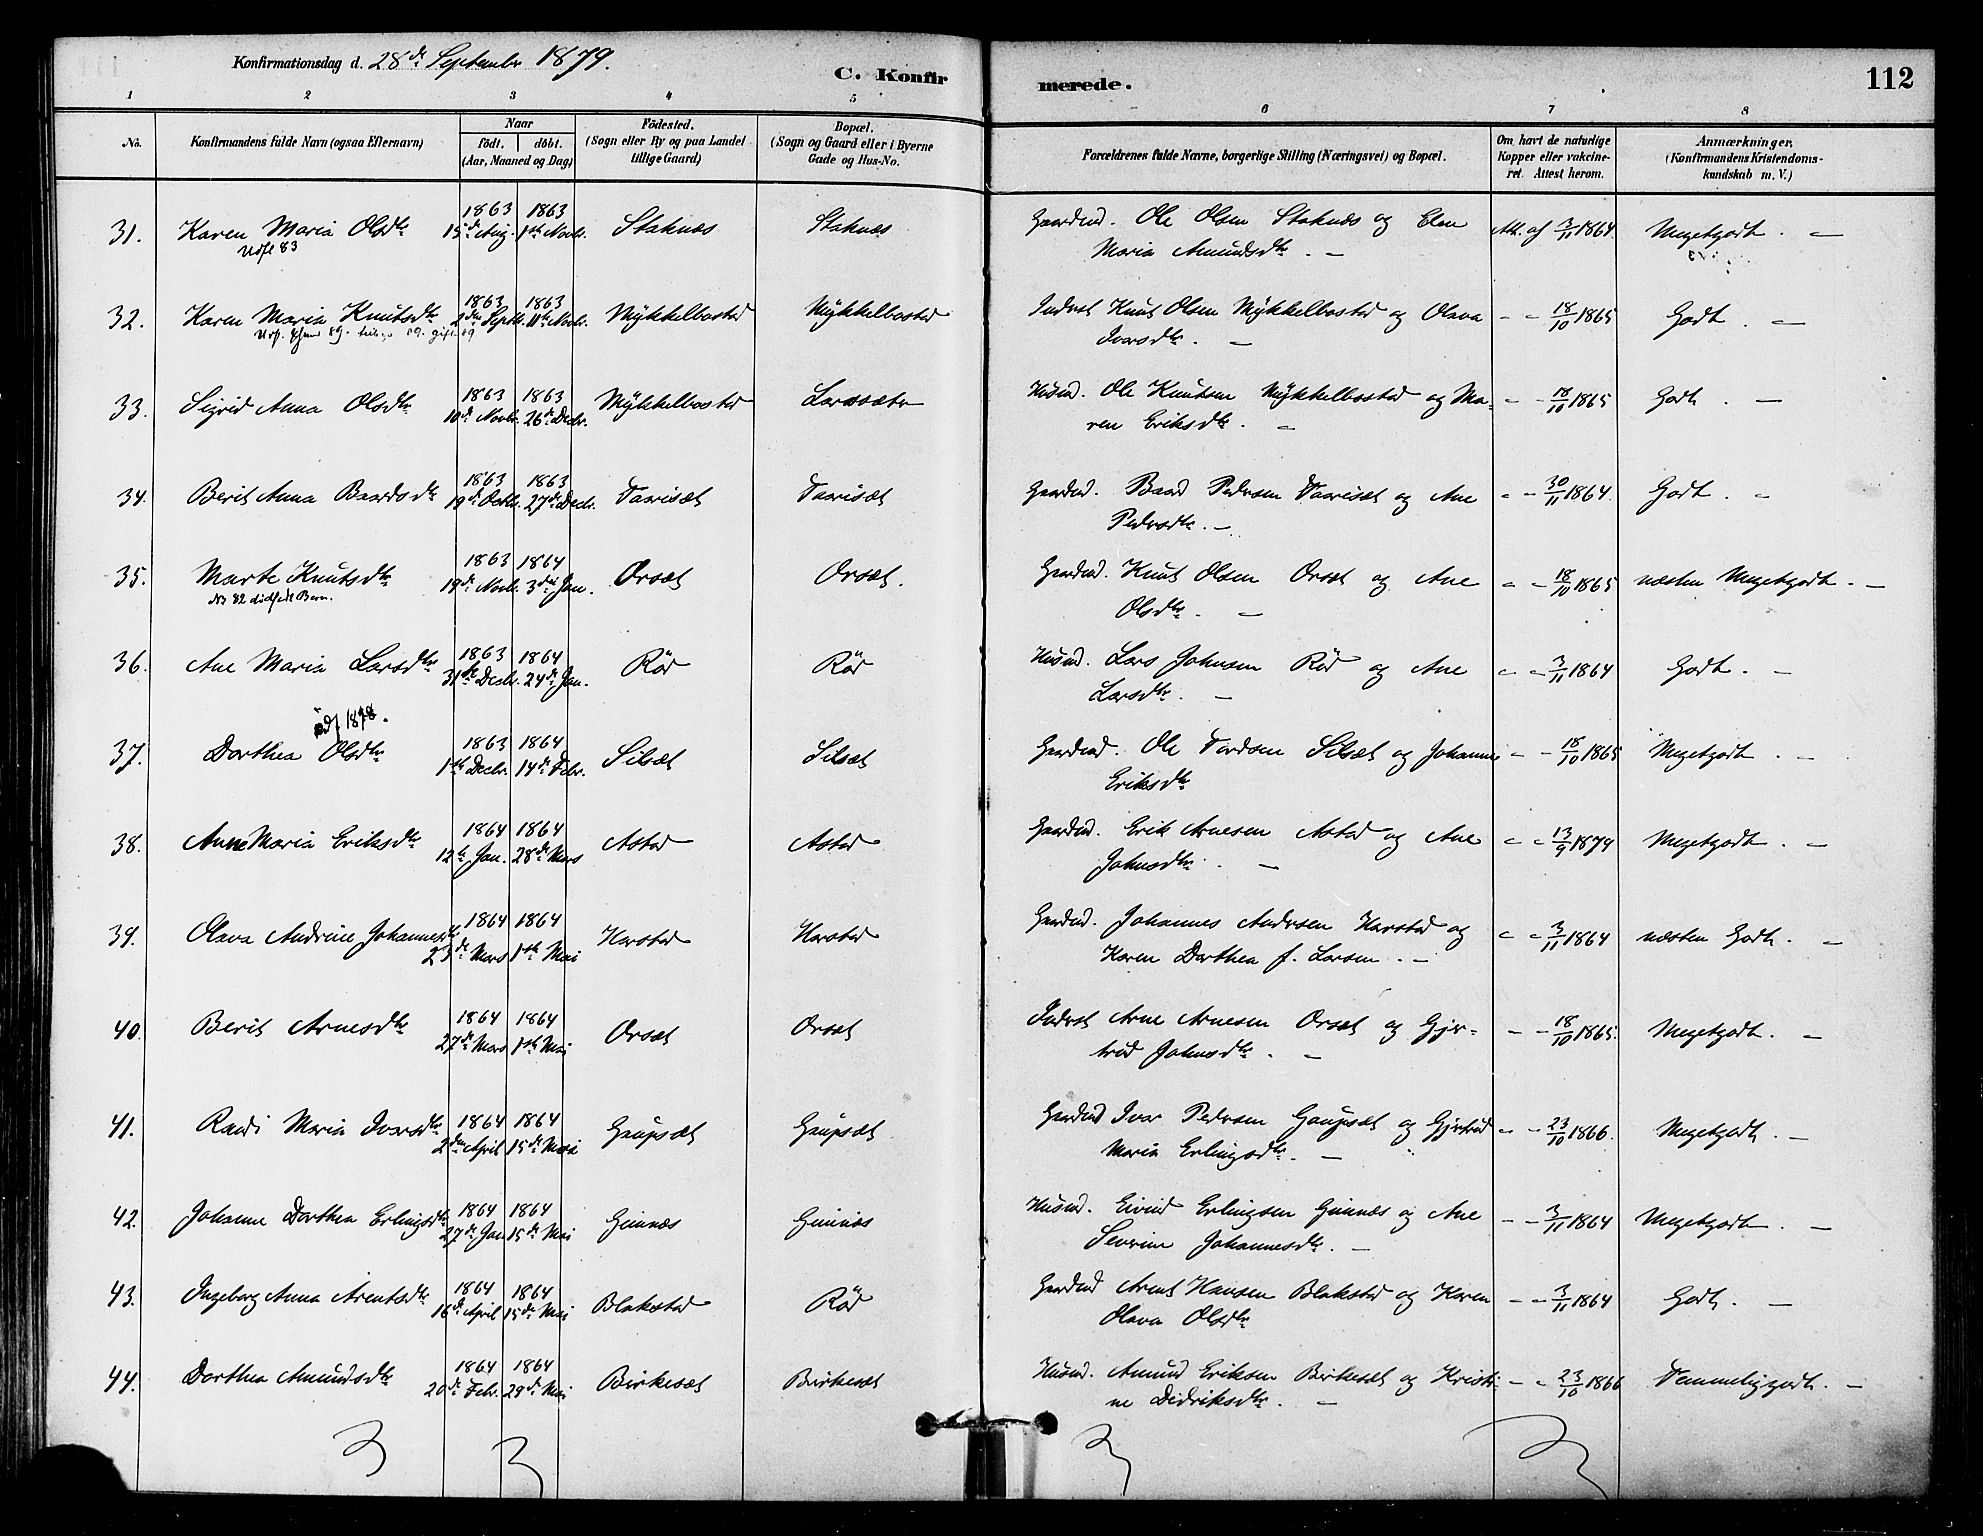 Konfirmationsdag d. 28de September 1879.
C. Konfirmerede.
112
1 2 3 4 5 6 7 8
No. Konfirmandens fulde Navn (ogsaa Efternavn) Naar födt. döbt. (Aar, Maaned og Dag) Födested. (Sogn eller By og paa Landet tillige Gaard) Bopæl. (Sogn og Gaard eller i Byerne Gade og Hus-No.) Forældrenes fulde Navne, borgerlige Stilling (Næringsvei) og Bopæl. Om havt de naturlige Kopper eller vakcineret. Attest herom. Anmærkninger. (Konfirmandens Kristendomskundskab m. V.)
31. Karen Maria Olsdtr 1863 15de Aug. 1863 1ste Novbr. Staknæs Staknæs Gaardmd. Ole Olsen Staknæs og Elen Maria Amundsdtr. — Att. af 3/11 1864. Megetgodt. —
Udfl 83
32. Karen Maria Knutsdtr 1863 2den Septbr. 1863 11te Novbr. Mykkelbostad Mykkelbostad Inderst Knut Olsen Mykkelbostad og Olava Ivarsdtr. — " - 18/10 1865 Godt. —
33. Sigrid Anna Olsdtr 1863 10de Novbr. 1863 26de Decbr. Mykkelbostad Larssæter Husmd. Ole Knutsen Mykkelbostad og Maren Eriksdtr. — " - 18/10 1865 Godt. —
34. Berit Anna Baardsdtr 1863 19de Octbr. 1863 27de Decbr. Taarisæt Taarisæt Gaardmd. Baard Pedersen Taarisæt og Ane Pedersdtr. — " - 30/11 1864. Godt. —
35. Marte Knutsdtr 1863 19de Novbr. 1864 3die Jan. Orsæt Orsæt. Gaardmd. Knut Olsen Orsæt og Ane Olsdtr. — " - 18/10 1865 næsten Megetgodt. —
No 82 dödfödt Barn.
36. Ane Maria Larsdtr 1863 31te Decbr. 1864 24de Jan. Rör Rör Husmd. Lars Johnsen Rör og Ane Larsdtr. — " - 3/11 1864 Godt. —
udf 1898.
37. Dorthea Olsdtr 1863 1ste Decbr. 1864 14de Febr. Silsæt Silsæt Gaardmd. Ole Tordsen Silsæt og Johanne Eriksdtr — - 18/10 1865 Megetgodt. —
38. Anne Maria Eriksdtr 1864 12te Jan. 1864 28de Mars Astad Astad Gaardmd. Erik Arnesen Astad og Ane Johnsdtr. — " " 13/9 1879 Megetgodt. —
39. Olava Andrine Johannesdtr 1864 23de Mars 1864 1ste Mai Harstad Harstad Gaardmd. Johannes Andersen Harstad og Karen Dorthea f. Larsen. — " " 3/11 1864 næsten Godt. —
40. Berit Arnesdtr 1864 27de Mars 1864 1ste Mai Orsæt Orsæt Inderst Arne Arnesen Orsæt og Gjertrud Johnsdtr. — — - 18/10 1865. Megetgodt. —
41. Randi Maria Ivarsdtr. 1864 2den April 1864 15de Mai Gaupsæt Gaupsæt Gaardmd Ivar Pedersen Gaupsæt og Gjertrud Maria Erlingsdtr. — " - 23/10 1866. Megetgodt. —
42. Johanne Dorthea Erlingsdtr 1864 27de Jan 1864 15de Mai Gimnæs Gimnæs Husmd. Eivind Erlingsen Gimnæs og Ane Severine Johannesdtr. — — - 3/11 1864 Megetgodt. —
43. Ingeborg Anna Arentsdtr 1864 16de April 1864 15de Mai Blakstad Rör Gaardmd Arent Hansen Blakstad og Karen Olava Olsdtr — - 3/11 1864 Godt. —
44. Dorthea Amundsdtr 1864 20de Febr. 1864 29de Mai Birkesæt Birkesæt Husmd. Amund Eriksen Birkesæt og Kristine Didriksdtr. — — " 23/10 1866 Temmeliggodt. —